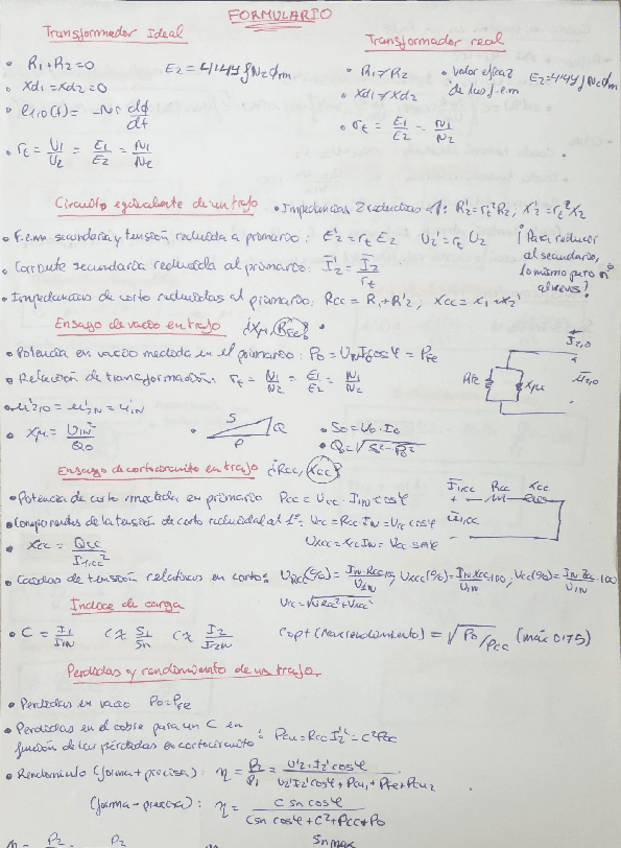 FORMULARIO
Transformador Ideal
Transformador real
• R1+R2=0   E2=4'44 f N2 ϕm
• Xd1=Xd2=0
• e1,2(t)= -N· dϕ/dt
• rt = U1/U2 = E1/E2 = N1/N2
• R1≠R2   • valor eficaz de las f.e.m   E2=4'44 f N2 ϕm
• Xd1≠Xd2
• rt = E1/E2 = N1/N2
Circuito equivalente de un trafo   • Impedancias 2 reducidas 1ª: R2'=rt² R2, X2'=rt² X2
• F.e.m secundaria y tensión reducida a primario: E2'=rt E2   U2'=rt U2
¡Para reducir
al secundario,
lo mismo pero
al revés!
• Corriente secundaria reducida al primario: I2' = I2/rt
• Impedancias de corto reducidas al primario: Rcc = R1+R'2, Xcc = X1+X2'
Ensayo de vacío en trafo   ¿Xμ, RFe?
• Potencia en vacío medida en el primario: P0 = UN I0 cosφ = PFe
• Relación de transformación: rt = N1/N2 = E1/E2 = N1/N2
I2,0
RFe   Xμ   u2,0
• u'2,0 = u'2N = u1N
• Xμ = U1N²/Q0
S   Q   P
• S0=U0·I0
• Q0=√S0²-P0²
Ensayo de cortocircuito en trafo   ¿Rcc, Xcc?
I1cc   Rcc   Xcc
• Potencia de corto medida en primario   Pcc = Ucc · I1N cosφ
u1cc
• Componentes de la tensión de corto reducida al 1º: URcc = Rcc I1N = Ucc cosφ
UXcc = Xcc I1N = Ucc senφ
• Xcc = Qcc/I1cc²
• Caídas de tensión relativas en corto: URcc(%) = I1N·Rcc/U1N·100, UXcc(%) = I1N Xcc/U1N·100; Ucc(%) = I1N Zcc/U1N·100
Ucc = √URcc²+UXcc²
Indice de carga
• C = I1/I1N   C≈ S2/Sn   C≈ I2/I2N   Copt (max rendimiento) = √P0/Pcc (máx 0'75)
Perdidas y rendimiento de un trafo
• Perdidas en vacío   P0=PFe
• Perdidas en el cobre para un C en
función de las pérdidas en cortocircuito: Pcu = Rcc I2'² = C²Pcc
• Rendimiento (forma + precisa): η = P2/P1 = U2'·I2' cosφ/U2' I2' cosφ + Pcu1 + PFe + Pcu2
(forma - precisa): η = C Sn cosφ/C Sn cosφ + C² + Pcc + P0
η = P2   P2
Sn max